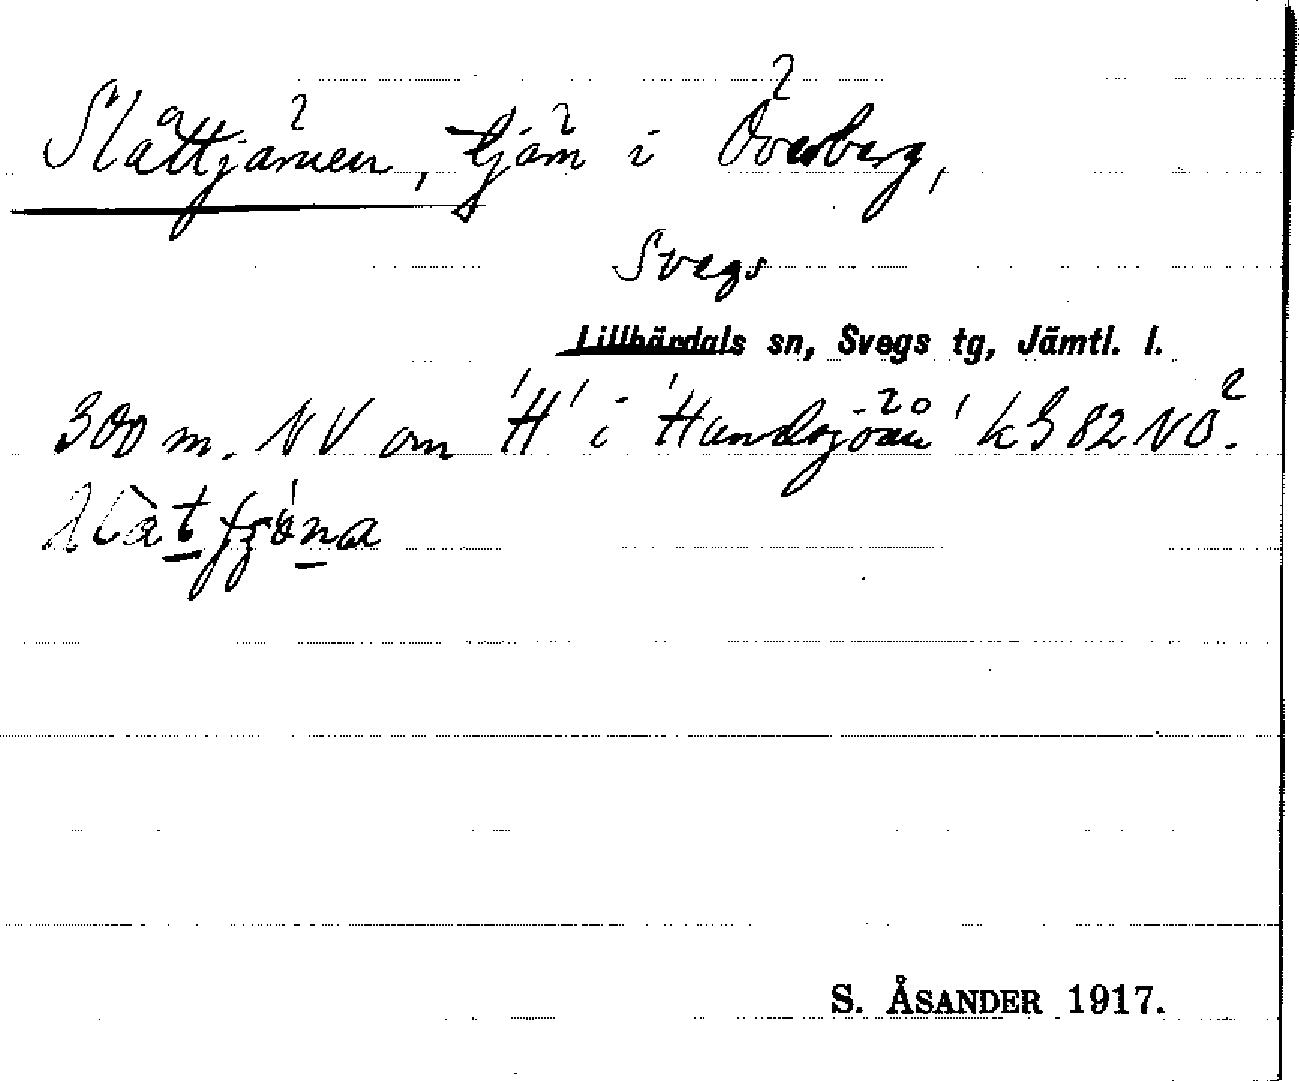 Slåttjärnen, tjärn i Överberg,
Svegs
Lillhärdals sn, Svegs tg, Jämtl. l.
300 m. NV om 'H' i 'Handsjöån' kS 82 NÖ.
S. ÅSANDER 1917.